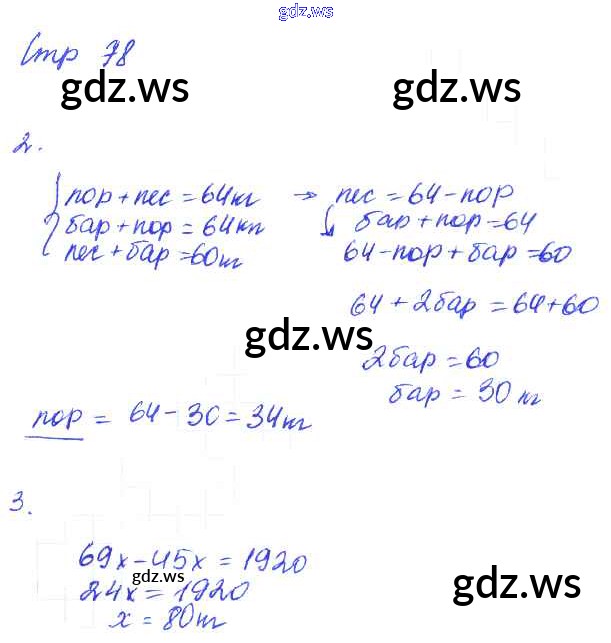 gdz.ws
Стр 78
gdz.ws gdz.ws
2.
пор + пес = 64кг → пес = 64 - пор
бар + пор = 64кг бар + пор = 64
пес + бар = 60кг 64 - пор + бар = 60
64 + 2бар = 64 + 60
gdz.ws
2бар = 60
бар = 30 кг
пор = 64 - 30 = 34кг
3.
69x - 45x = 1920
gdz.ws gdz.ws
24x = 1920
x = 80кг